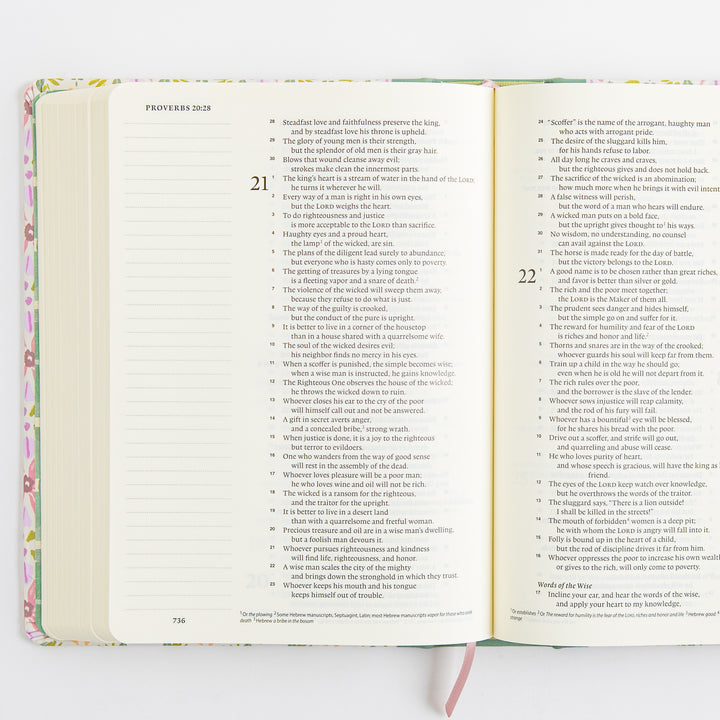 PROVERBS 20:28
28 Steadfast love and faithfulness preserve the king,
and by steadfast love his throne is upheld.
29 The glory of young men is their strength,
but the splendor of old men is their gray hair.
30 Blows that wound cleanse away evil;
strokes make clean the innermost parts.
21 1 The king's heart is a stream of water in the hand of the LORD;
he turns it wherever he will.
2 Every way of a man is right in his own eyes,
but the LORD weighs the heart.
3 To do righteousness and justice
is more acceptable to the LORD than sacrifice.
4 Haughty eyes and a proud heart,
the lamp1 of the wicked, are sin.
5 The plans of the diligent lead surely to abundance,
but everyone who is hasty comes only to poverty.
6 The getting of treasures by a lying tongue
is a fleeting vapor and a snare of death.2
7 The violence of the wicked will sweep them away,
because they refuse to do what is just.
8 The way of the guilty is crooked,
but the conduct of the pure is upright.
9 It is better to live in a corner of the housetop
than in a house shared with a quarrelsome wife.
10 The soul of the wicked desires evil;
his neighbor finds no mercy in his eyes.
11 When a scoffer is punished, the simple becomes wise;
when a wise man is instructed, he gains knowledge.
12 The Righteous One observes the house of the wicked;
he throws the wicked down to ruin.
13 Whoever closes his ear to the cry of the poor
will himself call out and not be answered.
14 A gift in secret averts anger,
and a concealed bribe,3 strong wrath.
15 When justice is done, it is a joy to the righteous
but terror to evildoers.
16 One who wanders from the way of good sense
will rest in the assembly of the dead.
17 Whoever loves pleasure will be a poor man;
he who loves wine and oil will not be rich.
18 The wicked is a ransom for the righteous,
and the traitor for the upright.
19 It is better to live in a desert land
than with a quarrelsome and fretful woman.
20 Precious treasure and oil are in a wise man's dwelling,
but a foolish man devours it.
21 Whoever pursues righteousness and kindness
will find life, righteousness, and honor.
22 A wise man scales the city of the mighty
and brings down the stronghold in which they trust.
23 Whoever keeps his mouth and his tongue
keeps himself out of trouble.
1 Or the plowing 2 Some Hebrew manuscripts, Septuagint, Latin; most Hebrew manuscripts vapor for those who seek
death 3 Hebrew a bribe in the bosom
736
24 "Scoffer" is the name of the arrogant, haughty man
who acts with arrogant pride.
25 The desire of the sluggard kills him,
for his hands refuse to labor.
26 All day long he craves and craves,
but the righteous gives and does not hold back.
27 The sacrifice of the wicked is an abomination;
how much more when he brings it with evil intent
28 A false witness will perish,
but the word of a man who hears will endure.
29 A wicked man puts on a bold face,
but the upright gives thought to1 his ways.
30 No wisdom, no understanding, no counsel
can avail against the LORD.
31 The horse is made ready for the day of battle,
but the victory belongs to the LORD.
22 1 A good name is to be chosen rather than great riches,
and favor is better than silver or gold.
2 The rich and the poor meet together;
the LORD is the Maker of them all.
3 The prudent sees danger and hides himself,
but the simple go on and suffer for it.
4 The reward for humility and fear of the LORD
is riches and honor and life.2
5 Thorns and snares are in the way of the crooked;
whoever guards his soul will keep far from them.
6 Train up a child in the way he should go;
even when he is old he will not depart from it.
7 The rich rules over the poor,
and the borrower is the slave of the lender.
8 Whoever sows injustice will reap calamity,
and the rod of his fury will fail.
9 Whoever has a bountiful3 eye will be blessed,
for he shares his bread with the poor.
10 Drive out a scoffer, and strife will go out,
and quarreling and abuse will cease.
11 He who loves purity of heart,
and whose speech is gracious, will have the king as
friend.
12 The eyes of the LORD keep watch over knowledge,
but he overthrows the words of the traitor.
13 The sluggard says, "There is a lion outside!
I shall be killed in the streets!"
14 The mouth of forbidden4 women is a deep pit;
he with whom the LORD is angry will fall into it.
15 Folly is bound up in the heart of a child,
but the rod of discipline drives it far from him.
16 Whoever oppresses the poor to increase his own wealth
or gives to the rich, will only come to poverty.
Words of the Wise
17 Incline your ear, and hear the words of the wise,
and apply your heart to my knowledge,
1 Or establishes 2 Or The reward for humility is the fear of the LORD, riches and honor and life 3 Hebrew good 4
strange